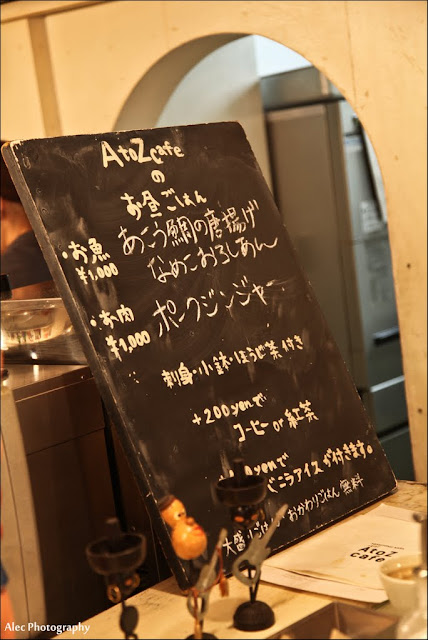 AtoZcafe
の
お昼ごはん
・お魚 ¥1,000
あこう鯛の唐揚げ
なめこおろしあん
・お肉 ¥1,000
ポークジンジャー
刺身・小鉢・ほうじ茶付き
+200yenで
コーヒー or 紅茶
yenで
バニラアイスが付きます。
大盛りごはん おかわりごはん 無料
AtoZ
cafe
Alec Photography